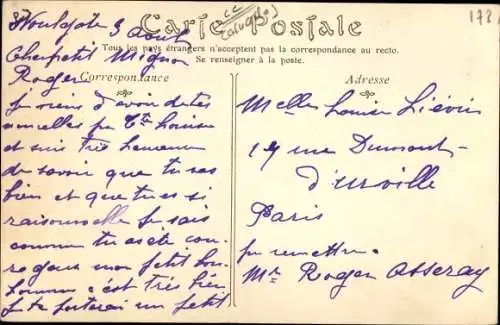 Houlgate 3 Août
Carte Postale
1721
Tous les pays étrangers n'acceptent pas la correspondance au recto.
Se renseigner à la poste.
Cher petit Mignon
Roger
Correspondance
Je viens d'avoir de tes
nouvelles par Tte Louise
et suis très heureuse
de savoir que tu vas
bien et que tu es si
raisonnable Je sais
comme tu as été cou-
rageux mon petit bon-
homme c'est très bien
Je te porterai un petit
Adresse
Melle Louise Liévin
19 rue Dumont-
d'Urville
Paris
pr remettre à
Mr Roger Asseray